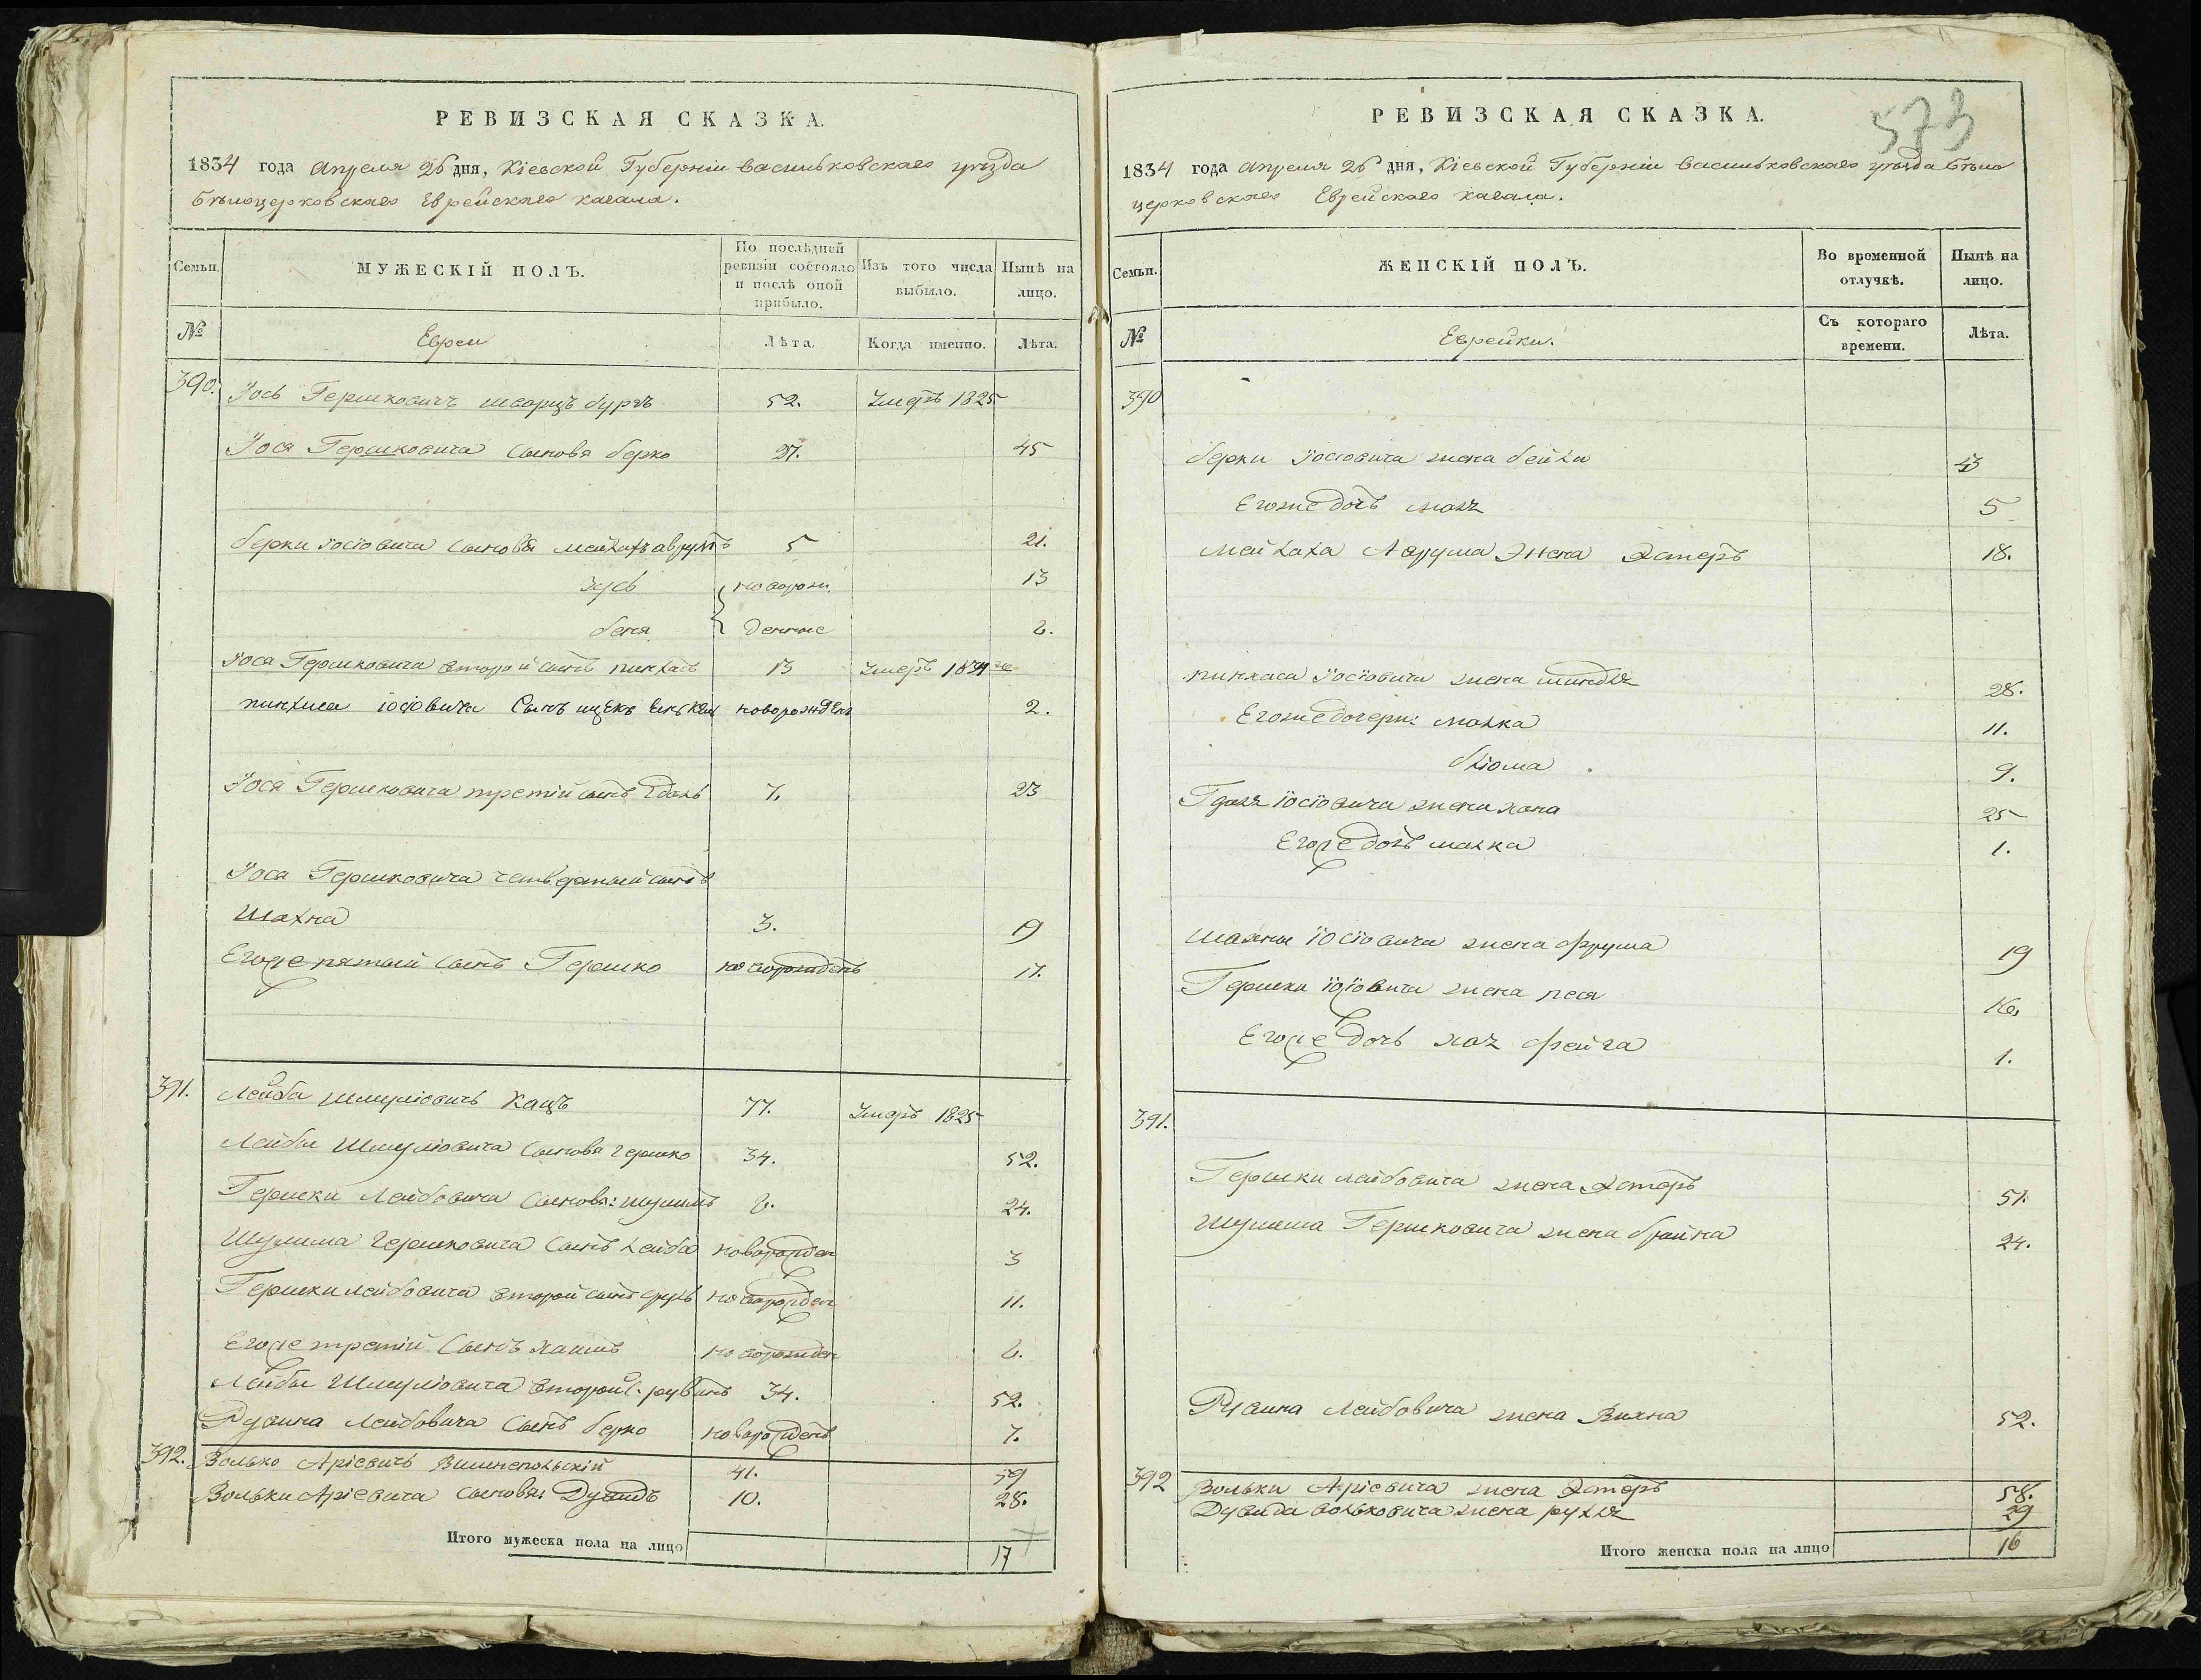 РЕВИЗСКАЯ СКАЗКА.
1834 года Апреля 26 дня, Кіевской Губерніи Васильковскаго уѣзда
Бѣлоцерковскаго Еврейскаго Кагала.
Семьи.
МУЖЕСКІЙ ПОЛЪ.
По послѣдней ревизіи состояло и послѣ оной прибыло.
Изъ того числа выбыло.
Нынѣ на лицо.
№
Евреи
Лѣта.
Когда именно.
Лѣта.
390. Іось Гершковичъ шварцъ бургъ 52. Умеръ 1825
Іося Гершковича сыновя берко 27. 45
берки Іосіовича сыновя Аврумъ 5 21.
зусь новорож. 13
беня денные 2.
Іося Гершковича второй сынъ пинхасъ 13 Умеръ 1831
пинхиса іосіовича Сынъ ицекъ новорожденъ 2.
Іося Гершковича третій сынъ Гдаль 7. 23
Іося Гершковича четвертый сынъ
Шахна 3. 19
Егоже пятый сынъ Гершко новорожденъ 17.
391. Лейба Шмуліовичъ Кацъ 77. Умеръ 1825
Лейбы Шмуліовича Сыновя гершко 34. 52.
Гершки Лейбовича Сыновя: шулимъ 6. 24.
Шулима Гершковича Сынъ Лейба новорожден 3
Гершки лейбовича второй сынъ сруль новорожден 11.
Егоже третій Сынъ хаимъ новорожден 2.
Лейбы Шмуліовича второй с. рувинъ 34. 52.
Рувина Лейбовича Сынъ берко новорожденъ 7.
392. Волько Аріевичъ Вишнепольскій 41. 59
Вольки Аріевича сыновя: Дувидъ 10. 28.
Итого мужеска пола на лицо 17
573
РЕВИЗСКАЯ СКАЗКА.
1834 года Апреля 26 дня, Кіевской Губерніи Васильковскаго уѣзда Бѣло
церковскаго Еврейскаго Кагала.
Семьи.
ЖЕНСКІЙ ПОЛЪ.
Во временной отлучкѣ.
Нынѣ на лицо.
№
Еврейки.
Съ котораго времени.
Лѣта.
390
берки Іосіовича жена бейла 43
Егоже дочь 5
Аврума Жена Эстеръ 18.
пинхаса Іосіовича жена шиндля 28.
Егоже дочери: малка 11.
блюма 9.
Гдаля іосіовича жена хана 25
Егоже дочь малка 1.
шахны іосіовича жена фрума 19
Гершки іосіовича жена песя 16.
Егоже дочь хая фейга 1.
391.
Гершки лейбовича жена Эстеръ 51.
Шулима Гершковича жена брайна 24.
Рувина Лейбовича жена Вихна 52.
392 Вольки Аріовича жена Эстеръ 58.
Дувида вольковича жена рухля 29
Итого женска пола на лицо 16